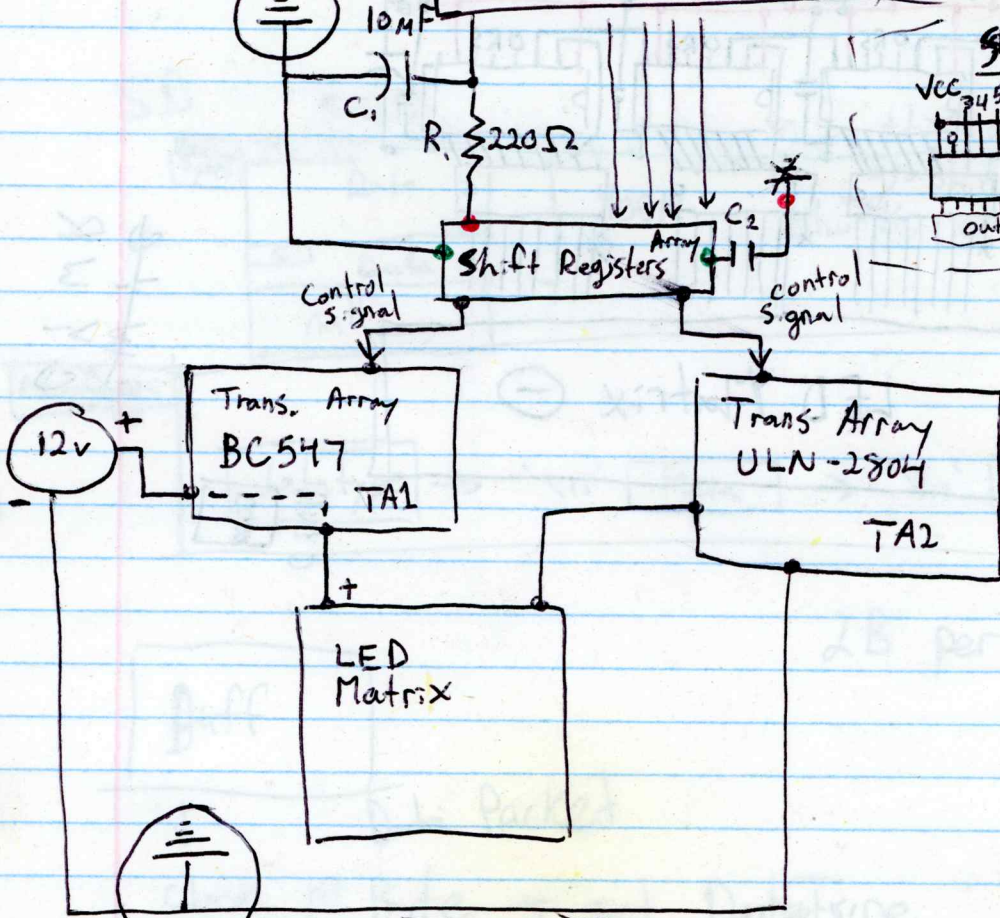 10μF
C1
R1 220Ω
VCC 345
C2
Array
Shift Registers
out
Control
signal
control
signal
Trans. Array
BC547
TA1
12v
+
-
Trans. Array
ULN-2804
TA2
+
LED
Matrix